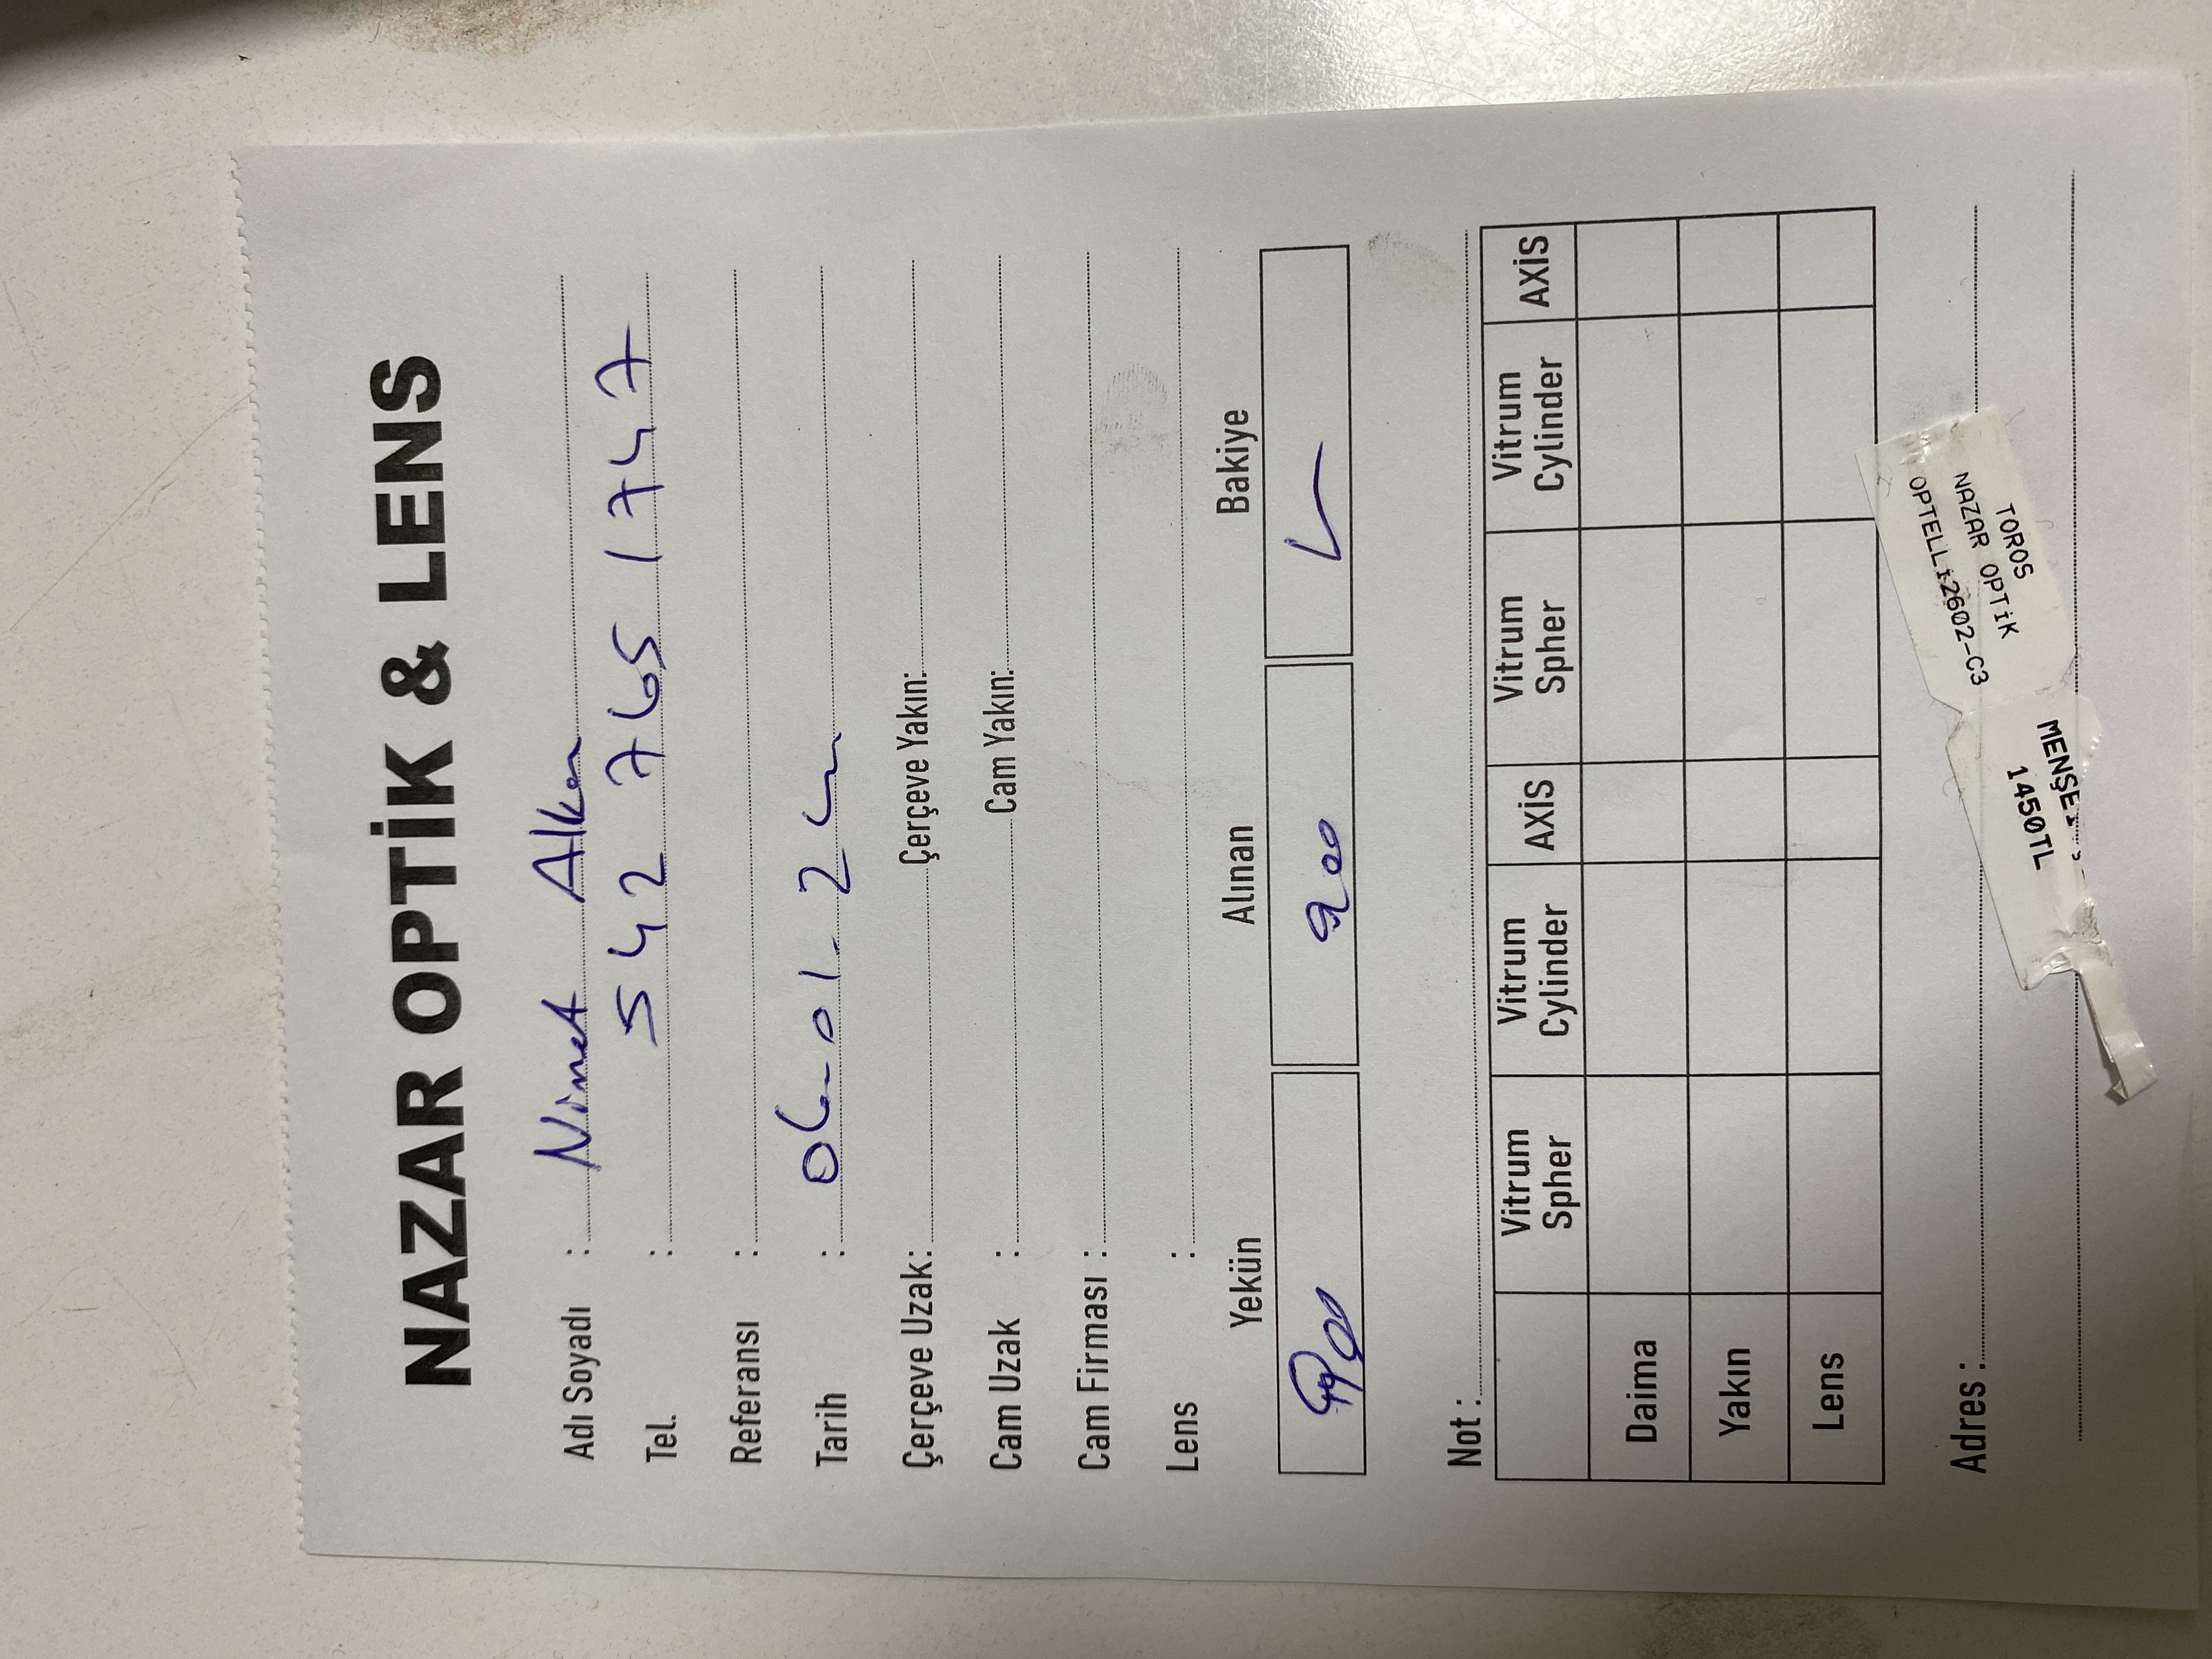 NAZAR OPTİK & LENS
Adı Soyadı : Nimet Alkan
Tel. : 542 765 1747
Referansı :
Tarih : 06-01-2
Çerçeve Uzak: Çerçeve Yakın:
Cam Uzak : Cam Yakın:
Cam Firması :
Lens :
Yekün Alınan Bakiye
900
Not :
Vitrum Spher Vitrum Cylinder AXİS Vitrum Spher Vitrum Cylinder AXİS
Daima
Yakın
Lens
Adres :
TOROS
NAZAR OPTİK
OPTELLİ2602-C3
MENŞEİ
1450TL